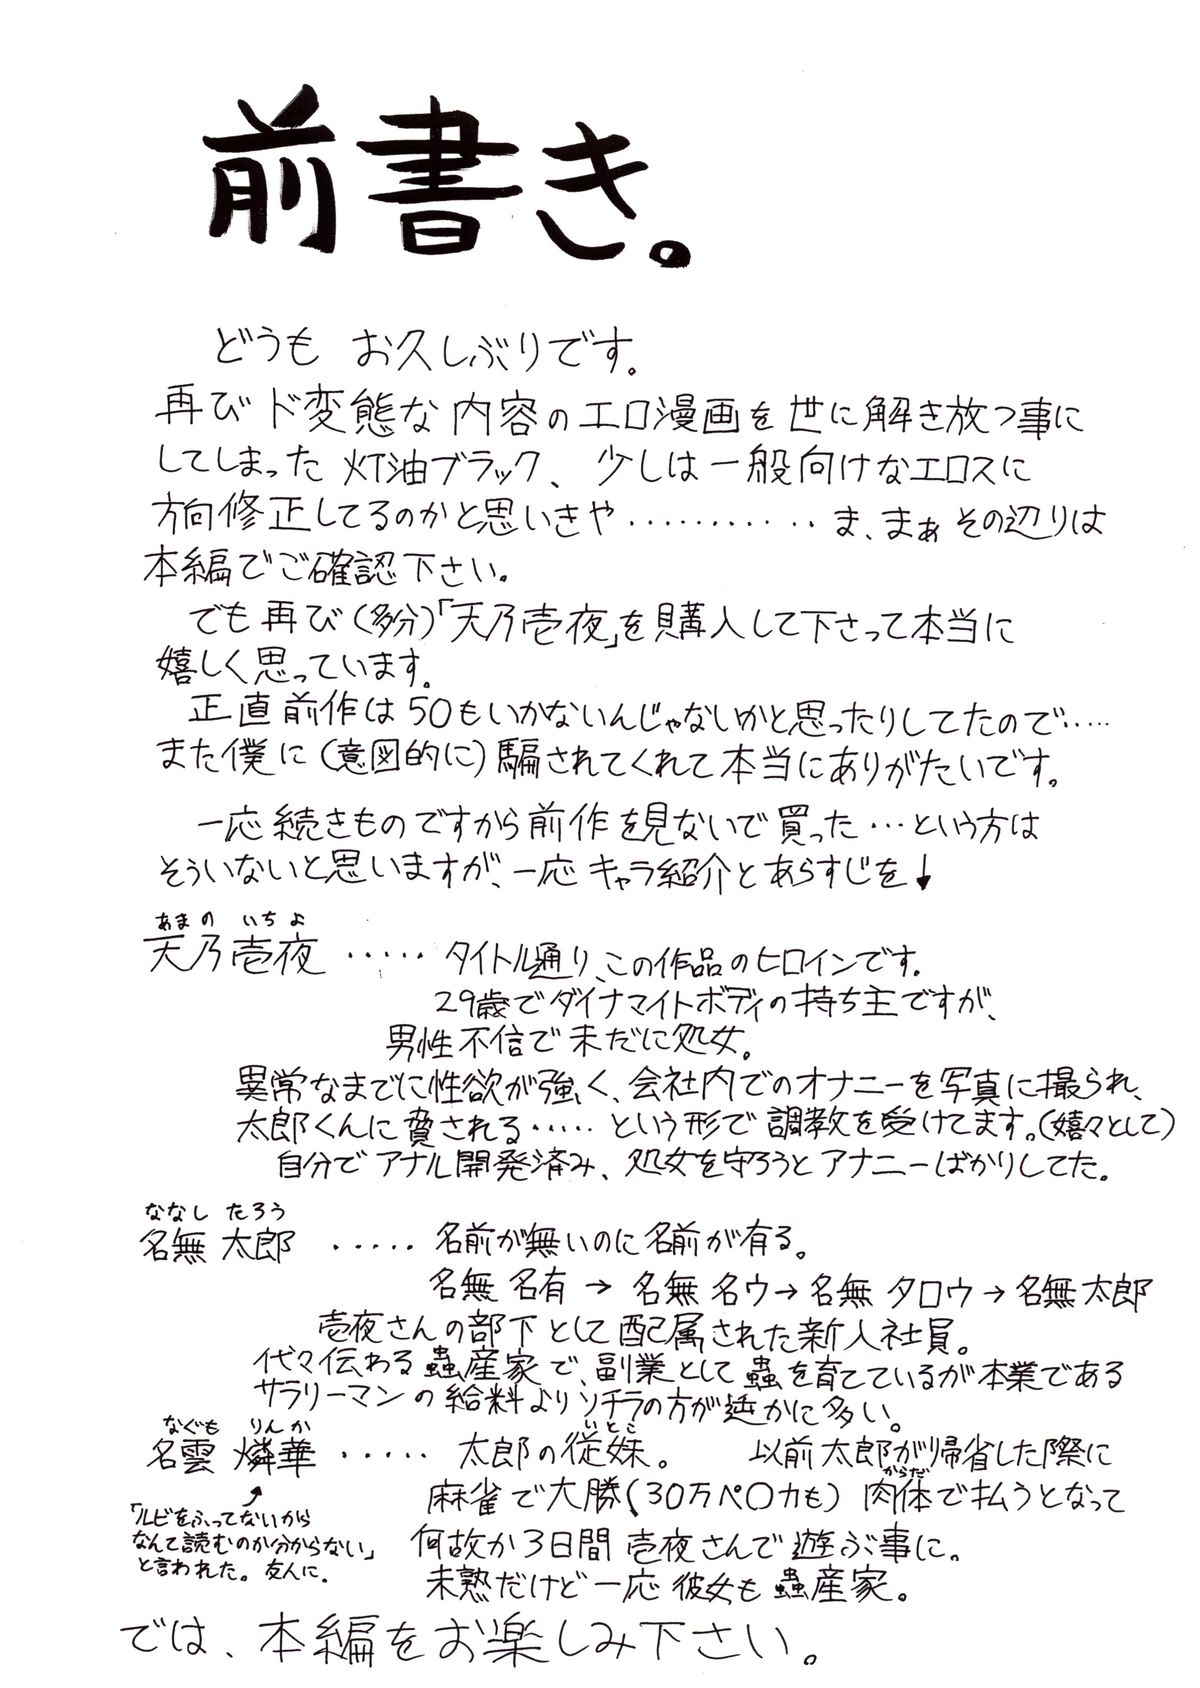 前書き。
どうも お久しぶりです。
再びド変態な内容のエロ漫画を世に解き放つ事に
してしまった灯油ブラック、少しは一般向けなエロスに
方向修正してるのかと思いきや………… ま、まぁその辺りは
本編でご確認下さい。
でも再び(多分)「天乃壱夜」を購入して下さって本当に
嬉しく思っています。
正直前作は50もいかないんじゃないかと思ったりしてたので‥‥
また僕に(意図的に)騙されてくれて本当にありがたいです。
一応続きものですから前作を見ないで買った…という方は
そういないと思いますが、一応キャラ紹介とあらすじを↓
あまの いちよ
天乃壱夜 ‥‥‥ タイトル通り、この作品のヒロインです。
29歳でダイナマイトボディの持ち主ですが、
男性不信で未だに処女。
異常なまでに性欲が強く、会社内でのオナニーを写真に撮られ、
太郎くんに脅される‥‥‥という形で調教を受けてます。(嬉々として)
自分でアナル開発済み、処女を守ろうとアナニーばかりしてた。
ななし たろう
名無 太郎 ‥‥‥ 名前が無いのに名前が有る。
名無 名有 → 名無 名ウ → 名無 タロウ → 名無 太郎
壱夜さんの部下として配属された新人社員。
代々伝わる蟲産家で、副業として蟲を育てているが本業である
サラリーマンの給料よりソチラの方が遥かに多い。
なぐも りんか
名雲 燐華 ‥‥‥ 太郎の従妹。 以前太郎が帰省した際に
いとこ
麻雀で大勝(30万ペ〇カも) 肉体で払うとなって
からだ
何故か3日間壱夜さんで遊ぶ事に。
未熟だけど一応彼女も蟲産家。
「ルビをふってないから
なんて読むのか分からない」
と言われた。友人に。
では、本編をお楽しみ下さい。